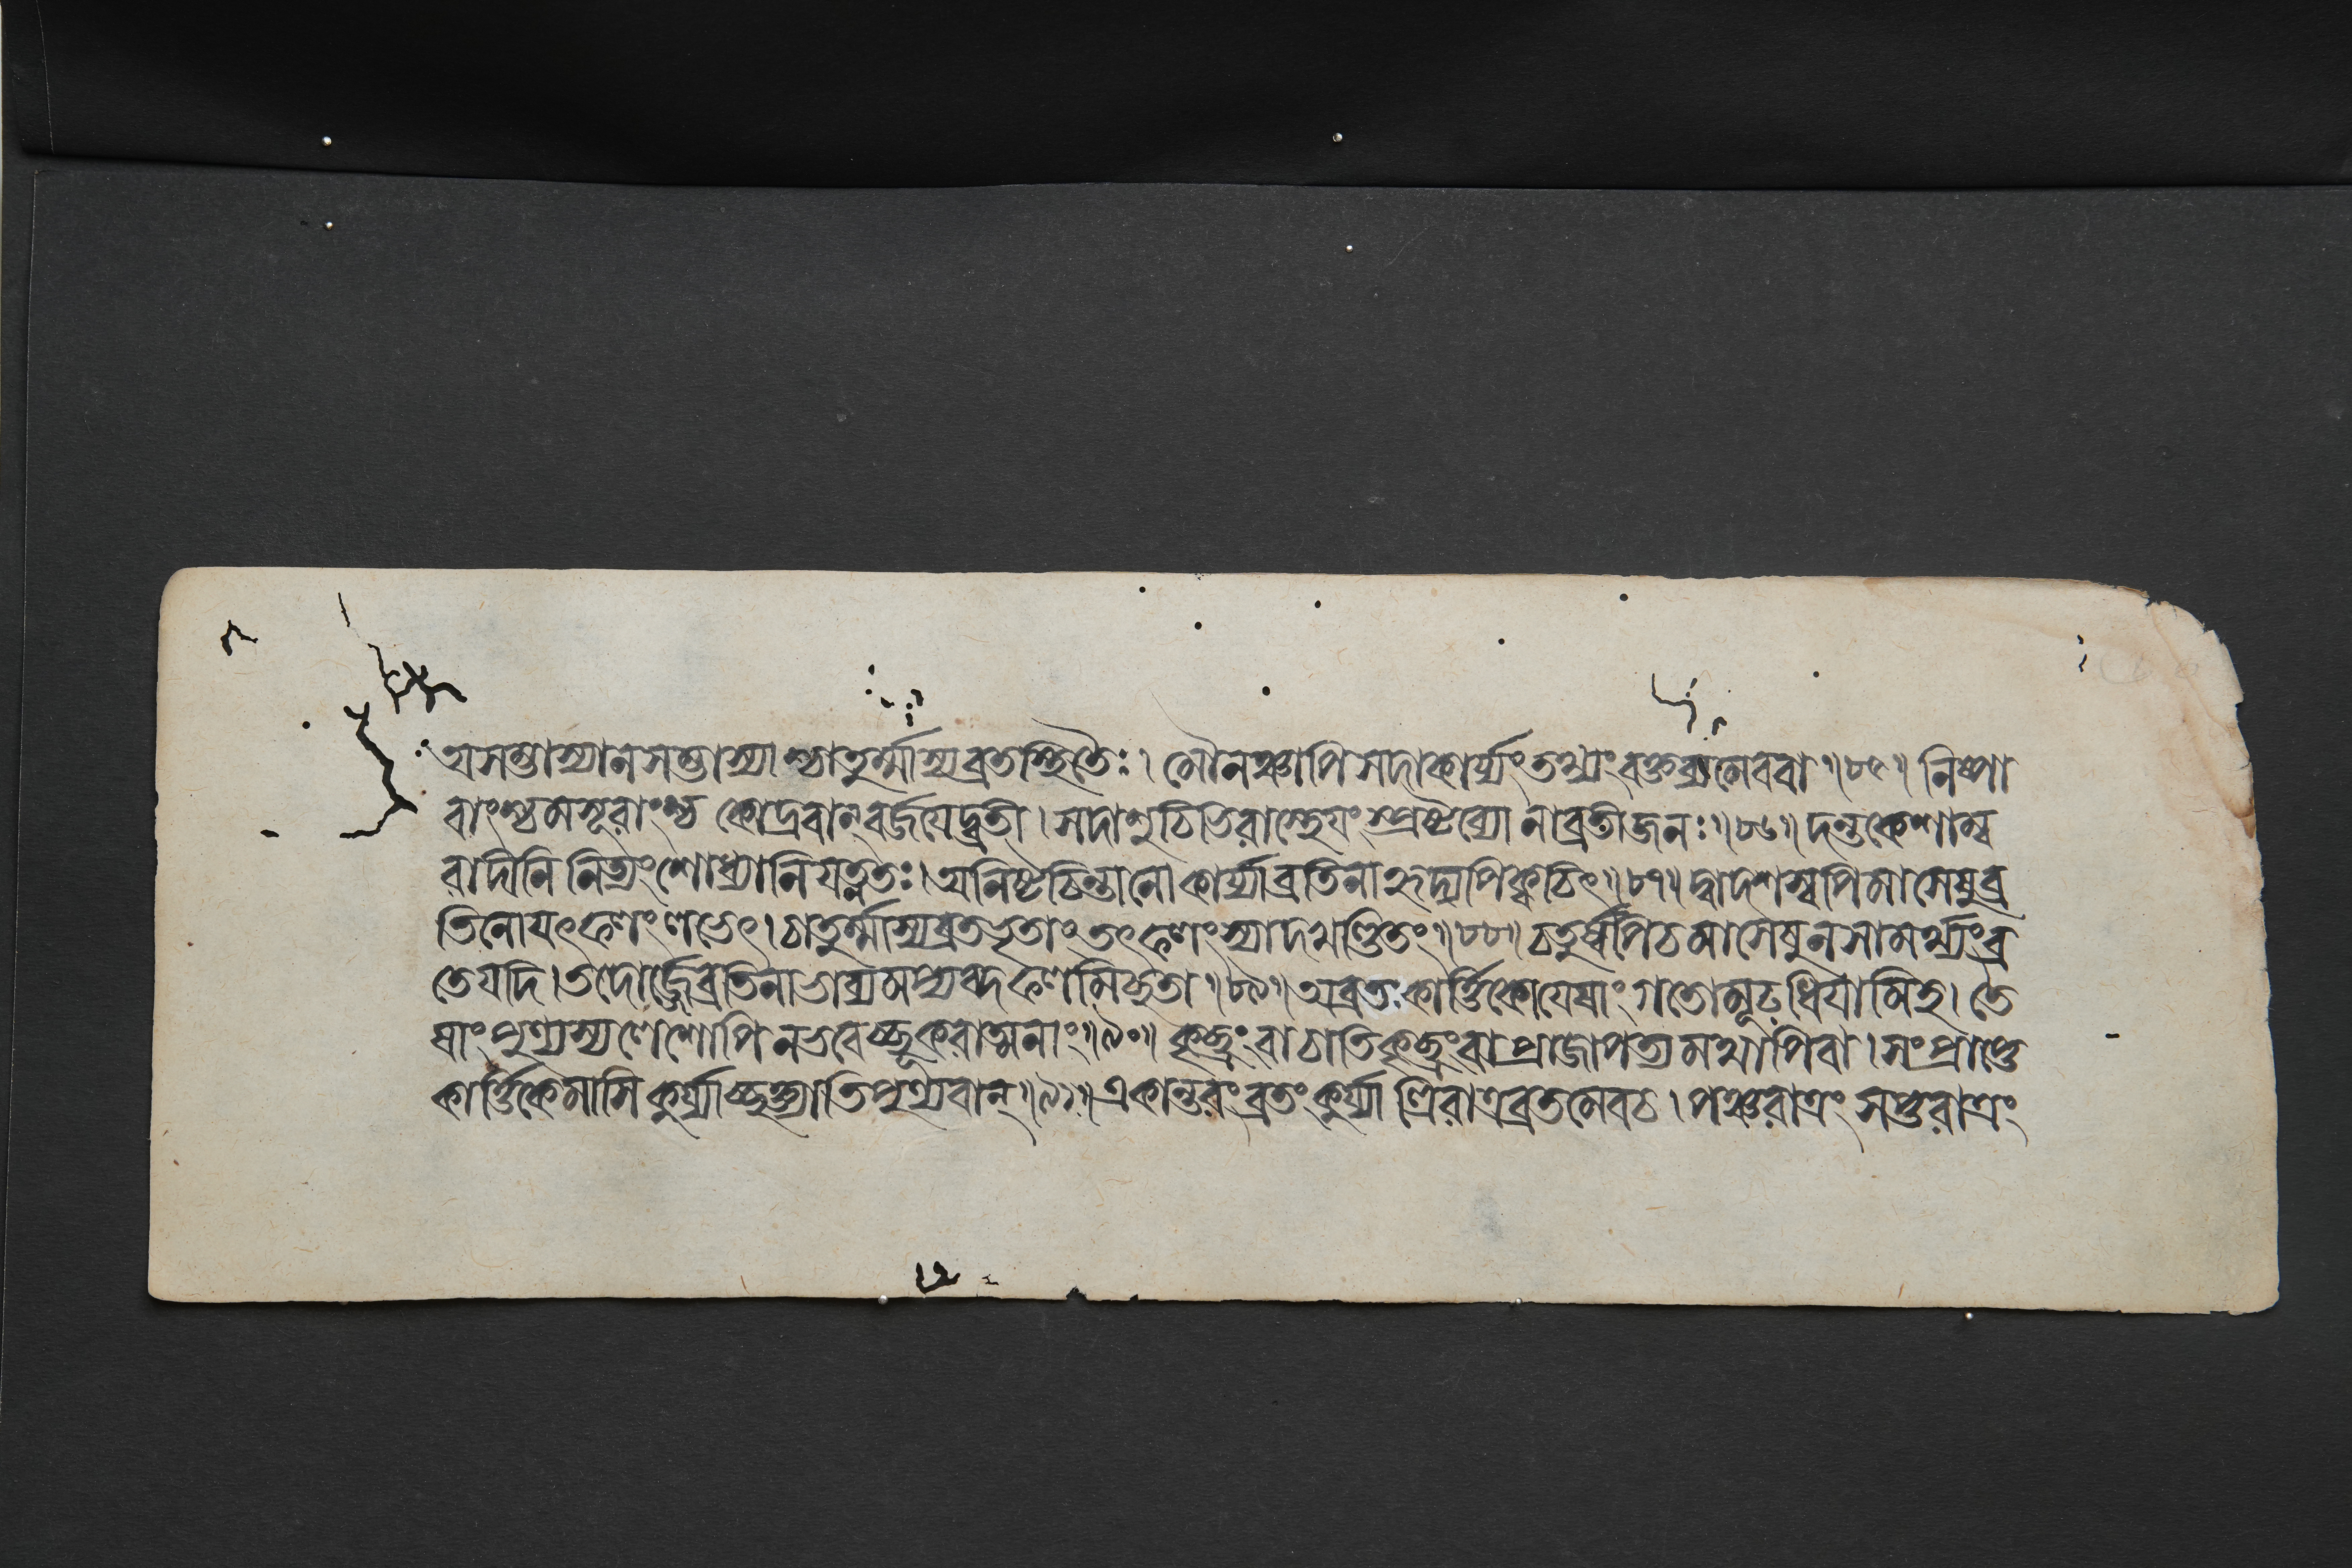 অসম্ভাষ্যানসম্ভাষ্যা শ্চাতুর্ম্মাস্যব্রতস্থিতৈঃ। মৌনঞ্চাপিসদাকার্য্যংতথ্যংবক্তব্যমেববা॥৮৫॥ নিষ্পা
বাংশ্চমসূরাংশ্চ কোদ্রবান্বর্জয়েদ্ব্রতী। সদাশুচিভিরাস্থেয়ং স্প্রষ্টব্যো নাব্রতীজনঃ॥৮৬॥ দন্তকেশাম্ব
রাদীনি নিত্যংশোধ্যানিযত্নতঃ। অনিষ্টচিন্তানোকার্য্যাব্রতিনাহৃদ্যপিক্বচিৎ॥৮৭॥ দ্বাদশস্বপিমাসেষুব্র
তিনোযৎফলংলভেৎ। চাতুর্ম্মাস্যব্রতভৃতাং তৎফলংস্যাদখণ্ডিতং॥৮৮॥ চতুর্ষ্বপিচমাসেষুনসামর্থ্যংব্র
তেযদি। তদোর্জ্জেব্রতিনাভাব্যমপ্যব্দফলমিচ্ছতা॥৮৯॥ অব্রতঃকার্ত্তিকোযেষাং গতোমূঢ়ধিয়ামিহ। তে
ষাং পুণ্যস্যলেশোপি নভবেচ্ছূকরাত্মনাং॥৯০॥ কৃচ্ছ্রং বাচাতিকৃচ্ছ্রংবাপ্রাজাপত্যমথাপিবা। সংপ্রাপ্তে
কার্ত্তিকেমাসি কুর্য্যাচ্ছক্ত্যাতিপুণ্যবান্॥৯১॥ একান্তরংব্রতংকুর্য্যা ত্ত্রিরাত্রব্রতমেবচ। পঞ্চরাত্রং সপ্তরাত্রং